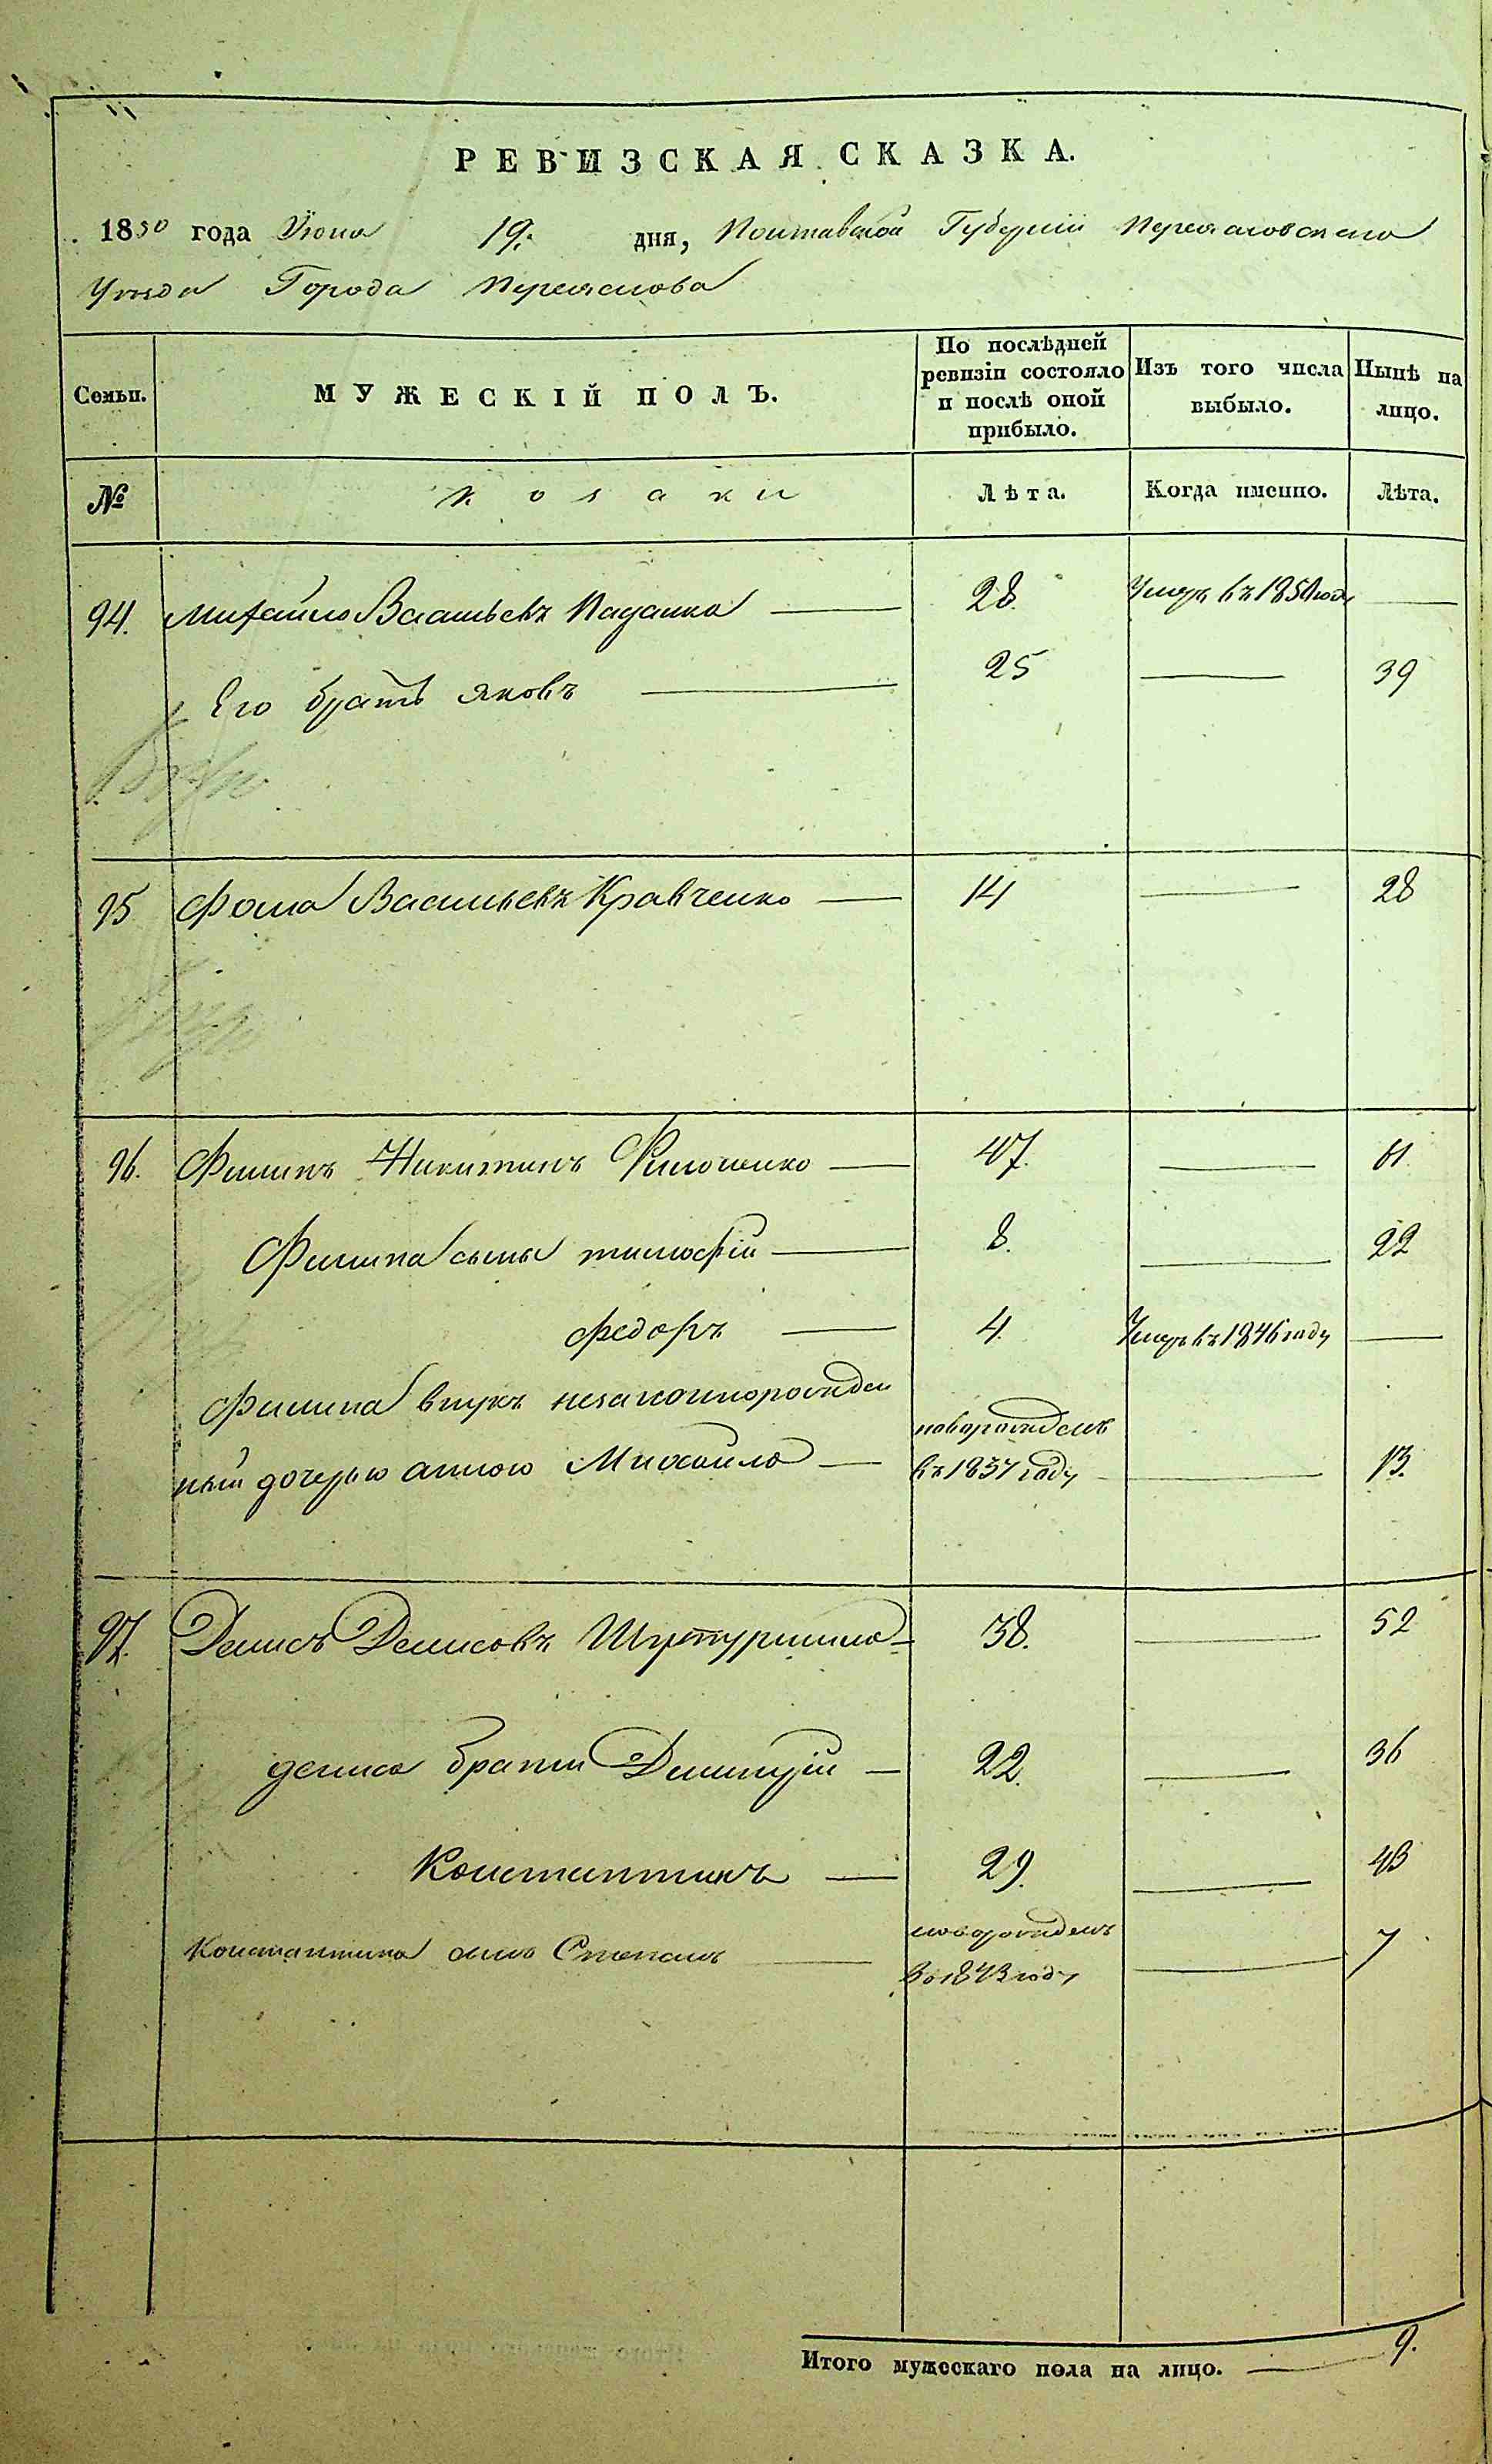 РЕВИЗСКАЯ СКАЗКА.
1850 года Июня 19. дня, Полтавской Губерніи Переяславскаго
Уезда Города Переяслова
Семьи. МУЖЕСКІЙ ПОЛЪ. По послѣдней ревизіи состояло и послѣ оной прибыло. Изъ того числа выбыло. Нынѣ на лицо.
№ козаки Лѣта. Когда именно. Лѣта.
94. Михайло Васильевъ Падалка 28. Умеръ въ 1850 году
Его братъ Яковъ 25 39
95 Фома Васильевъ Кравченко 14 28
96. Филипъ Никитинъ 47. 61
Филипа сыны тимофій 8. 22
федоръ 4. Умеръ въ 1846 году
Филипа внукъ незаконнорожден
ный дочерью анною Михайло новорожденъ въ 1837 году 13.
97. Денисъ Денисовъ 38. 52
дениса братья Дмитрій 22. 36
Константинъ 29. 43
Константина сынъ Степанъ новорожденъ в 1843 году 7
Итого мужескаго пола на лицо. 9.